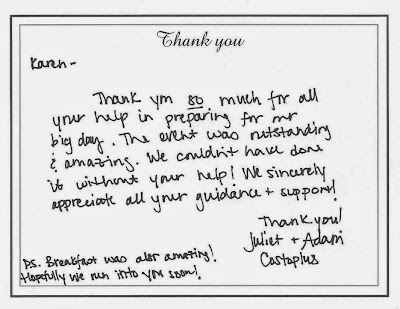 Thank you
Karen -
Thank you so much for all
your help in preparing for our
big day. The event was outstanding
& amazing. We couldn't have done
it without your help! We sincerely
appreciate all your guidance + support!
Thank you!
Juliet + Adam
Castoplus
PS. Breakfast was also amazing!
Hopefully we run into you soon!